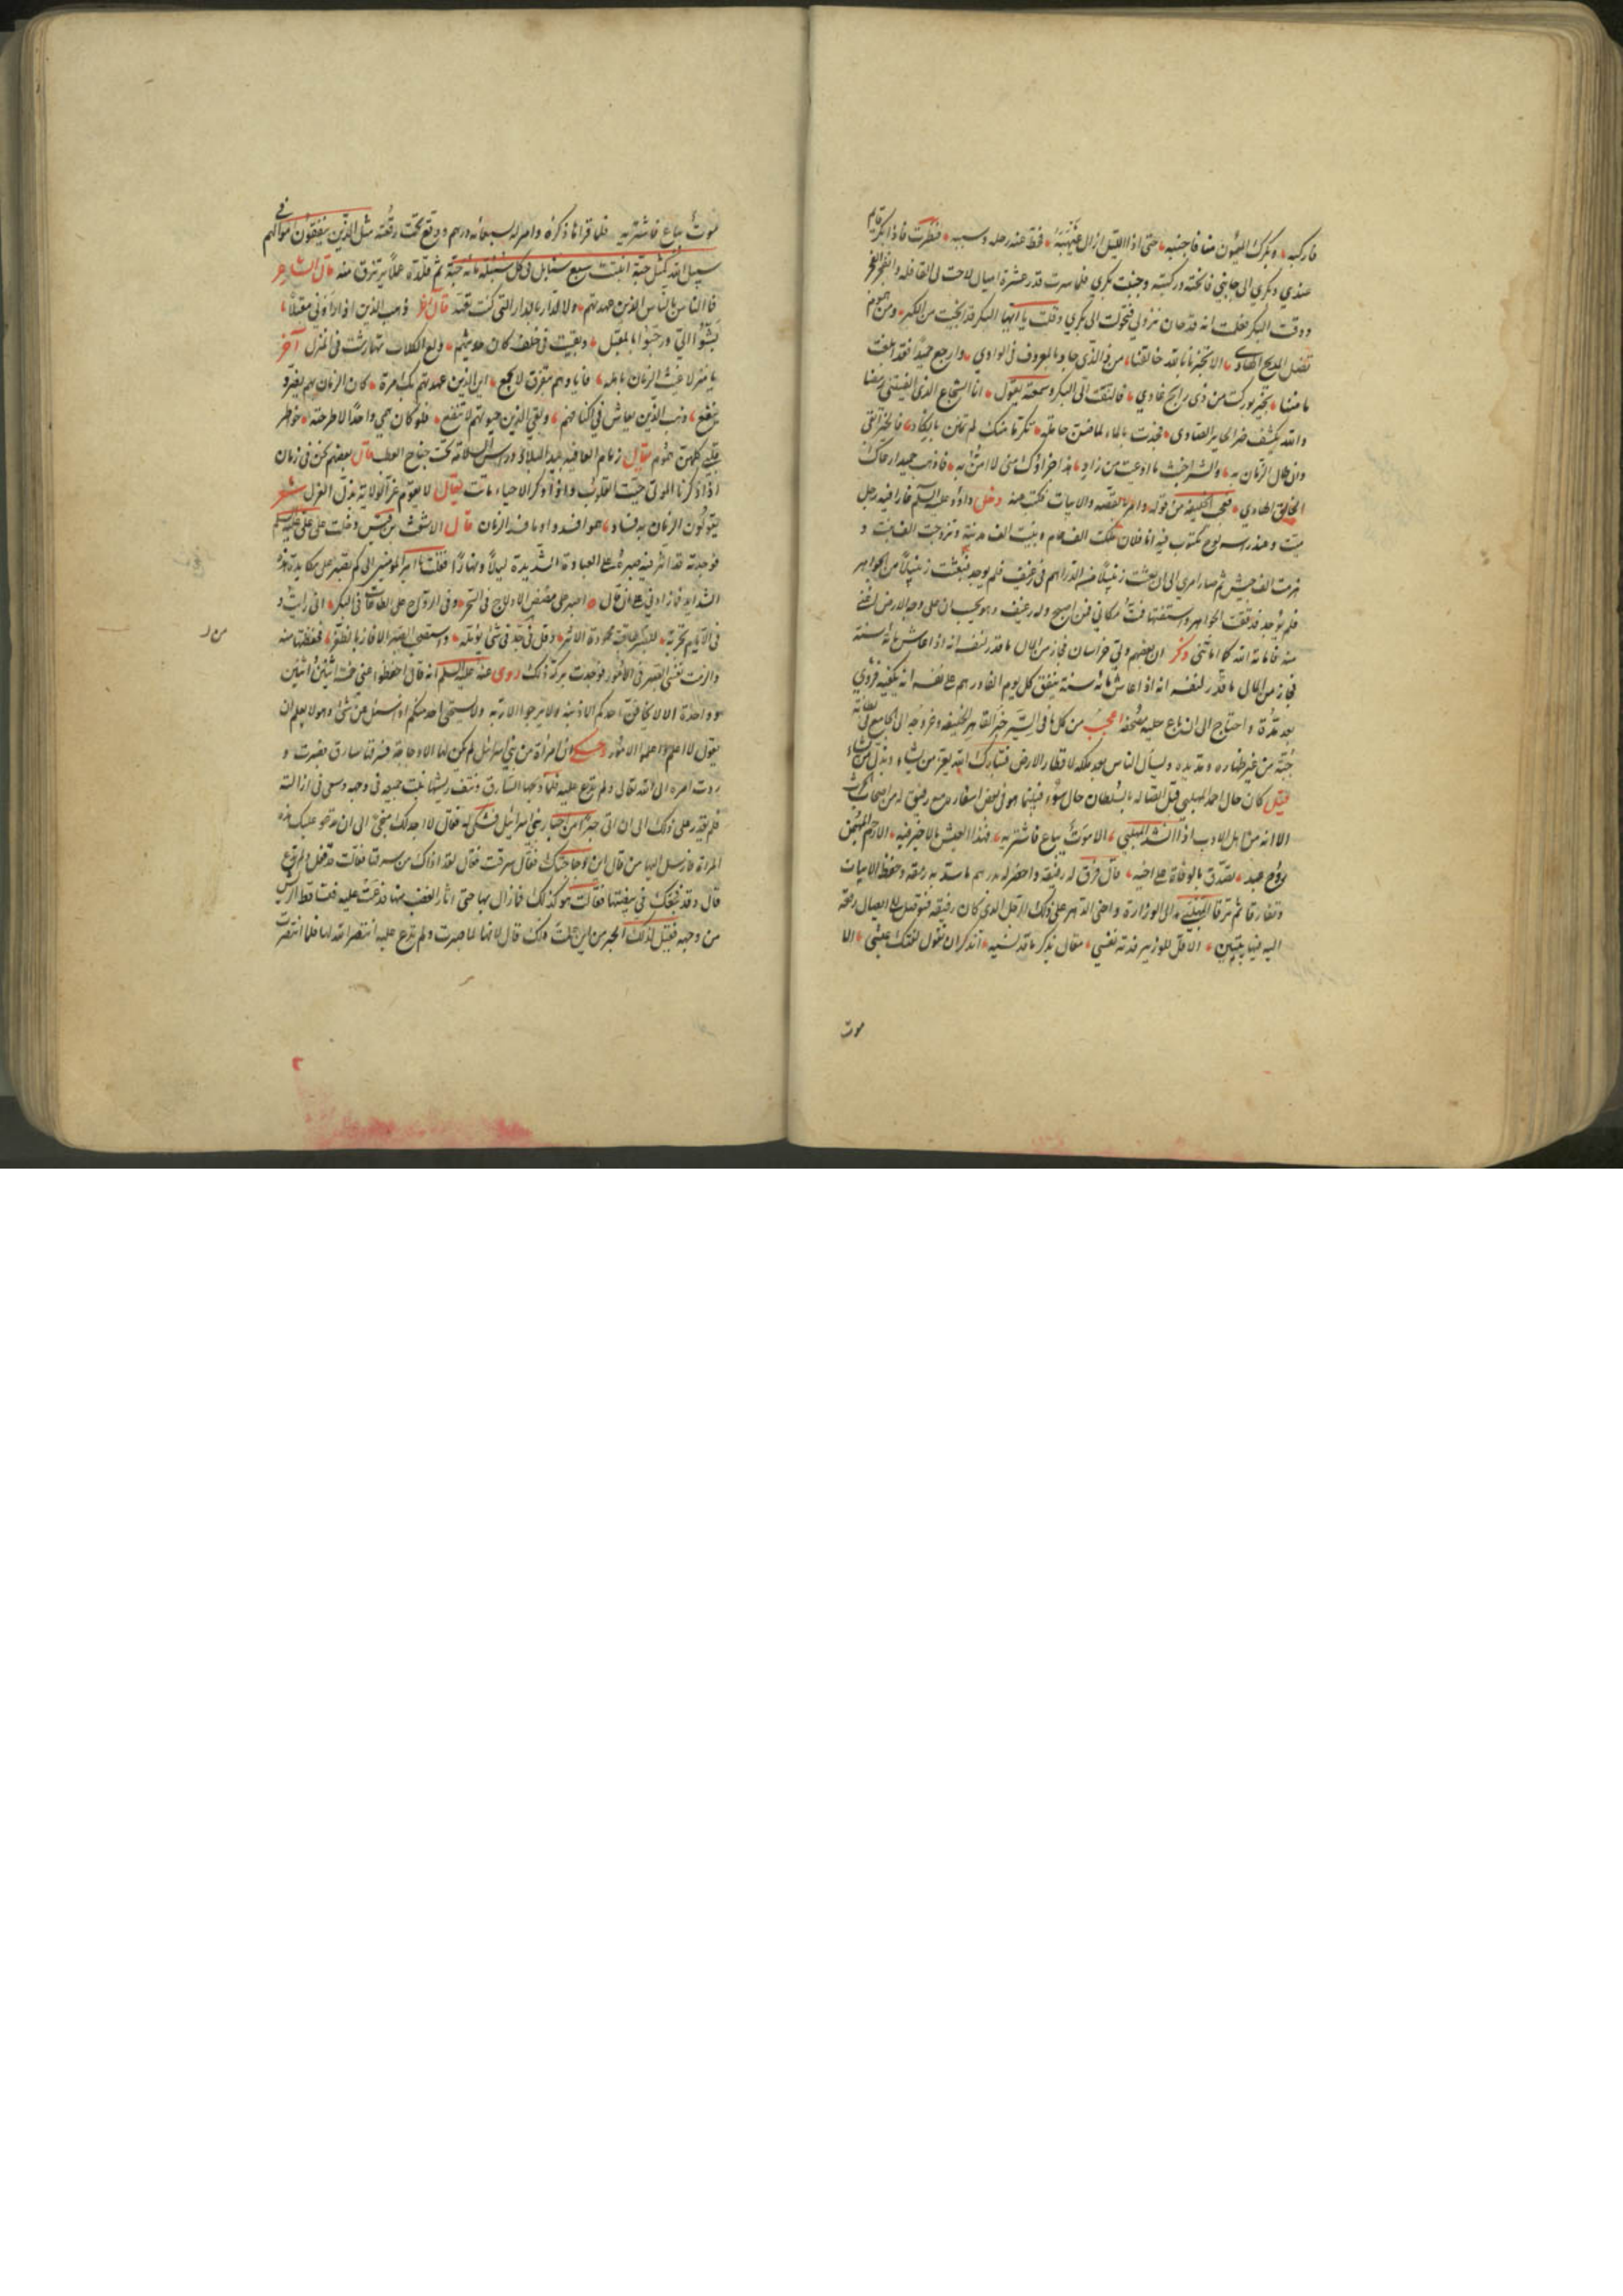 فاركبه وبكرك الميمون منا فاجنبه حتى اذا الليل ازال غيهبه فحط عنه رحله وسببه فنظرت فاذا بكر قائم
عندي وبكري الى جانبي فانخته وركبته وجنبت بكري فلما سرت قدر عشرة اميال لاحت لي القافلة وانفجر الفجر
ووقف البكر فعلمت انه قد حان نزولي فتحولت الى بكري وقلت يا ايها البكر قد انجيت من الكرب ومن هموم
تضل المدلج الهادي الا تخبرنا بالله خالقنا من ذا الذي جاد بالمعروف في الوادي وارجع حميدا فقد ابلغت
ما مننا بخير بوركت من ذي رايح غادي فالتفت الي البكر وسمعته يقول انا الشجاع الذي الفيتني رمضا
والله يكشف ضر الحاير الصادي فجدت بالماء لما ضن حامله تكرما منك لم تمنن بانكاد فالخير ابقى
وان طال الزمان به والشر اخبث ما اوعيت من زاد هذا جزاؤك مني لا امن به فاذهب حميدا رعاك
الخالق الهادي فعجب الخليفة من قوله وامر بالقصه والابيات فكتبت عنه دخل داود عليه السلم غارا فيه رجل
ميت وعند راسه لوح مكتوب فيه انا فلان ملكت الف عام وبنيت الف مدينة وتزوجت الف بنت و
هزمت الف جيش ثم صار امري الى ان بعثت زنبيلا من الدراهم في رغيف فلم يوجد فبعثت زنبيلا من الجواهر
فلم يوجد فدققت الجواهر واستففتها فمت مكاني فمن اصبح وله رغيف وهو يحسب ان على وجه الارض اغنى
منه فاماته الله كما اماتني وذكر ان بعضهم ولي خراسان فحاز من المال ما قدر لنفسه انه اذا عاش مائة سنة
فحاز من المال ما قدر لنفسه انه اذا عاش مائه سنة ينفق كل يوم الف درهم على نفسه انه يكفيه فرؤي
بعد مدة واحتاج الى ان باع حلية مصحفه اعجب من كل ما في السير خبر القاهر الخليفة وخروجه الى الجامع في بطانة
جبة من غير ظهاره ومد يده وسأل الناس بعد ملكه لاقطار الارض فتبارك الله يعز من يشاء ويذل من يشاء
قيل كان حال احمد المهلبي قبل اتصاله بالسلطان حال سوء فبينما هو في بعض اسفاره مع رفيق له من اصحاب الحرث
الا انه من اهل الادب اذ انشد المهلبي الا موت يباع فاشتريه فهذا العيش ما لا خير فيه الا رحم المهيمن
روح عبد تصدق بالوفاة على اخيه قال فرق له رفيقه واحضر له بدرهم ما سد به رمقه وحفظ الابيات
وتفارقا ثم ترقا المهلبي الى الوزارة واخنى الدهر على ذلك الرجل الذي كان رفيقه فتوصل الى ايصال رقعة
اليه فيها بيتين الا قل للوزير فدته نفسي مقال مذكر ما قد نسيه اتذكر ان تقول لضنك عيش الا
موت
موت يباع فاشتريه فلما قراها ذكره وامر له بسبعمائه درهم ووقع تحت رقعته مثل الذين ينفقون اموالهم في
سبيل الله كمثل حبة انبتت سبع سنابل في كل سنبلة مائة حبة ثم قلده عملا يرتزق منه قال الشاعر
فما الناس بالناس الذين عهدتهم ولا الدار بالدار التي كنت تعهد قال اخر ذهب الذين اذا راوني مقبلا
بشوا الي ورحبوا بالمقبل وبقيت في خلف كان حديثهم ولغ الكلاب تهارشت في المنزل آخر
يا منزلا عبث الزمان باهله فابادهم بتفرق لا يجمع اين الذين عهدتهم بك مرة كان الزمان بهم يضر و
ينفع ذهب الذين يعاش في اكنافهم وبقي الذين حياتهم لا تنفع فلو كان همي واحدا لاطرحته خواطر
قلبي كلهن هموم يقال زمام العافيه بيد البلاء وراس السلامة تحت جناح العطب قال بعضهم نحن في زمان
اذا ذكرنا الموتى حييت القلوب واذا ذكر الاحياء ماتت يقال لا يقوم عز الولاية بذل العزل شعر
يقولون الزمان به فساد هم افسدوا وما فسد الزمان قال الاشعث بن قيس دخلت على علي عليه السلم
فوجدته قد اثر فيه صبره على العبادة الشديدة ليلا ونهارا فقلت يا امير المؤمنين الى كم تصبر على مكابدة هذه
الشدايد فما زادني على ان قال اصبر على مضض الادلاج في السحر وفي الرواح على الطاعات في البكر اني رايت و
في الايام تجربة للصبر عاقبة محمودة الاثر وقل من جد في شئ يؤمله واستصحب الصبر الا فاز بالظفر فحفظتها منه
والزمت نفسي الصبر في الامور فوجدت بركة ذلك روي عنه عليه السلم انه قال احفظوا عني خمسا اثنين واثنين
وواحدة الا لا يخافن احدكم الا ذنبه ولا يرجو الا ربه ولا يستحي احد منكم اذا سئل عن شئ وهو لا يعلم ان
يقول لا اعلم واعلموا الامور وحكي ان امراة من بني اسرائيل لم يكن لها الا دجاجة فسرقها سارق فصبرت و
ردت امره الى الله تعالى ولم تدع عليه فلما ذبحها السارق ونتف ريشها نبت جميعه في وجهه وسعى في ازالته
فلم يقدر على ذلك الى ان اتى حبرا من احبار بني اسرائيل فشكى له فقال لا اجد لك منجى الى ان تدعو عليك هذه
المراة فارسل اليها من قال اين دجاجتك فقالت سرقت فقال لقد اذاك من سرقها فقالت قد فعل ولم تدع
قال وقد فجعك في بيضتها فقالت هو كذلك فما زال بها حتى اثار الغضب منها فدعت عليه فتساقط الريش
من وجهه فقيل لذلك الحبر من اين علمت ذلك قال لانها لما صبرت ولم تدع عليه انتصر الله لها فلما انتصرت